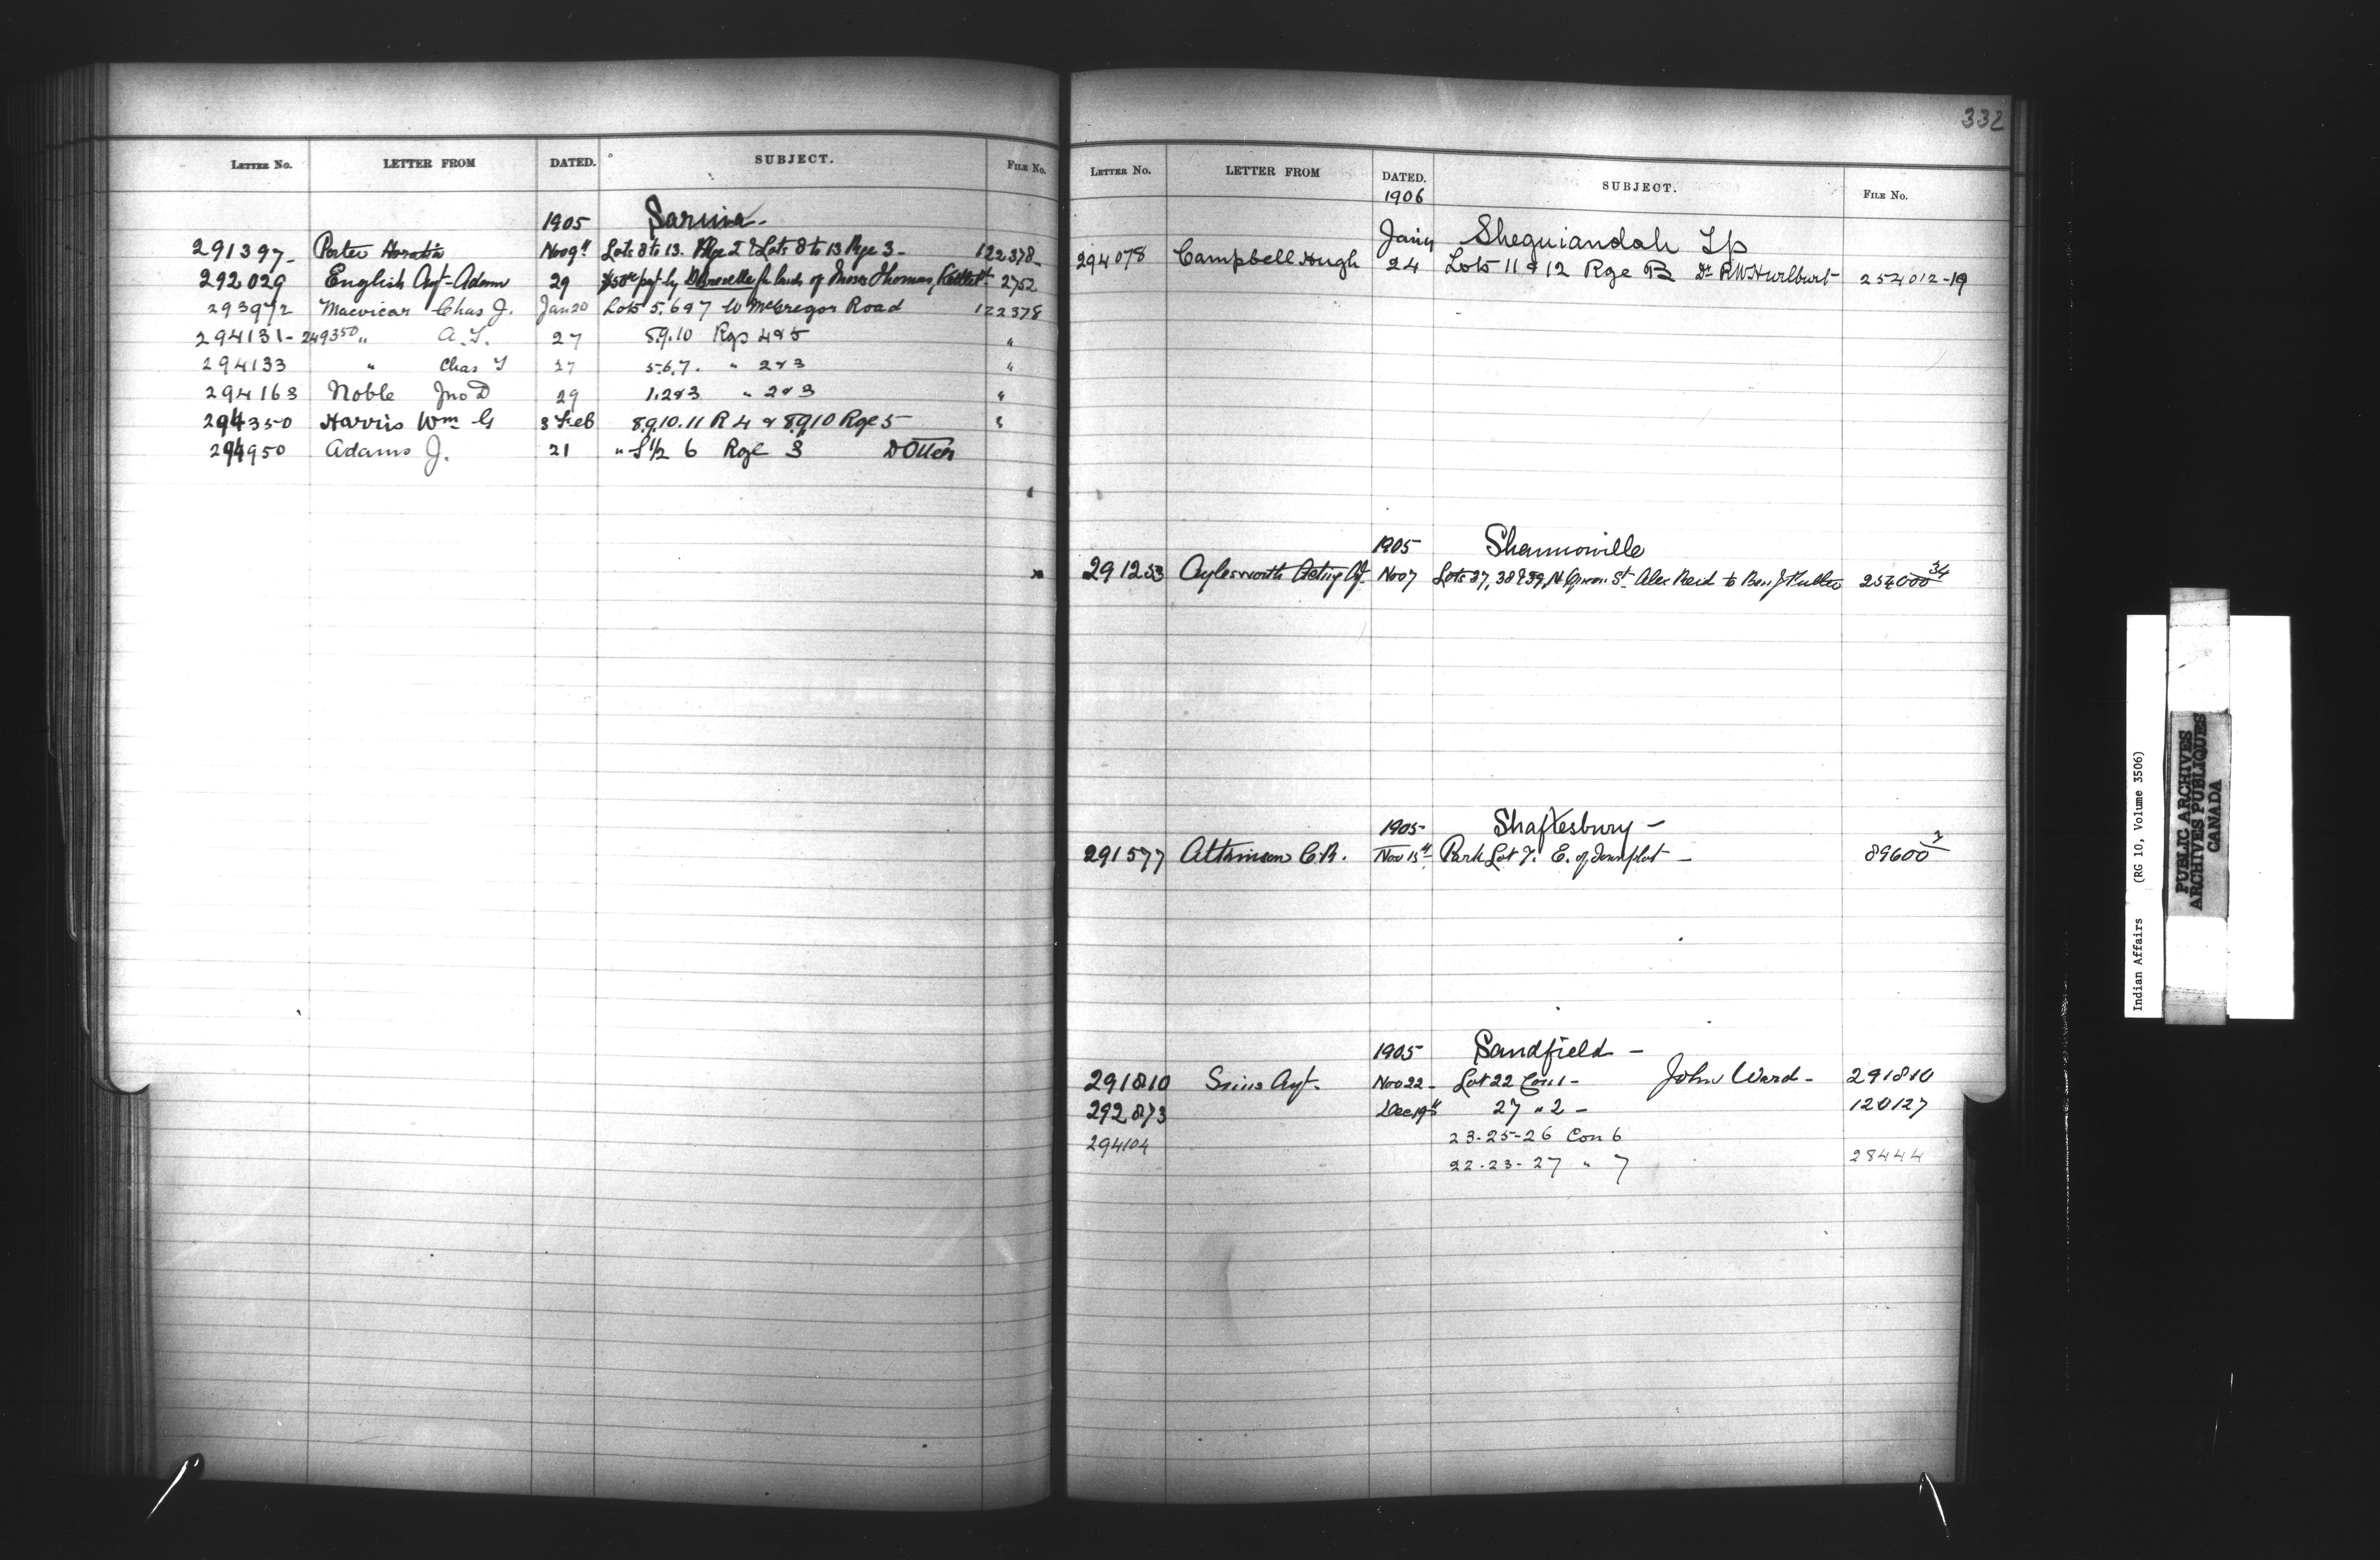 LETTER No. LETTER FROM DATED. SUBJECT. FILE No.
1905 Sarnia -
291397 - Porter Horatio Nov 9th Lots 8 to 13. Rge 2 & Lots 8 to 13 Rge 3 - 122378 -
292029 English Agt - Adam 29 by for lands of Moses Thomas, Kettle Pt 2752
293972 Macvicar Chas J. Jan 20 Lots 5.6&7 W McGregor Road 122378
294131 - 249350 " A.T. 27 8.9.10 Rgs 4&5 "
294133 " Chas T 27 5.6.7. " 2&3 "
294163 Noble Jno D 29 1.2&3 " 2&3 "
294350 Harris Wm G 3 Feb 8.9.10.11 R 4 & 8.9.10 Rge 5 "
294950 Adams J. 21 " S 1/2 6 Rge 3 D Otter
332
LETTER No. LETTER FROM DATED. SUBJECT. FILE No.
1906
Jany Sheguiandah Tp
294078 Campbell Hugh 24 Lots 11 & 12 Rge B Dr. R W Hurlburt 254012-19
1905 Shannonville
291253 Aylesworth Acting Agt Nov 7 Lots 37, 38 & 39, N. Queen St. Alex Reid to Ben J 254000 34
1905 - Shaftesbury -
291577 Atkinson C.R. Nov 15th Park Lot 7. E. of Townplot - 89600 2
1905 Sandfield -
291810 Sims Agt. Nov 22 - Lot 22 Con 1 - John Ward - 291810
292873 Dec 19th 27 " 2 - 120127
294104 23-25-26 Con 6
22-23-27 " 7 28444
Indian Affairs (RG 10, Volume 3506)
PUBLIC ARCHIVES
ARCHIVES PUBLIQUES
CANADA